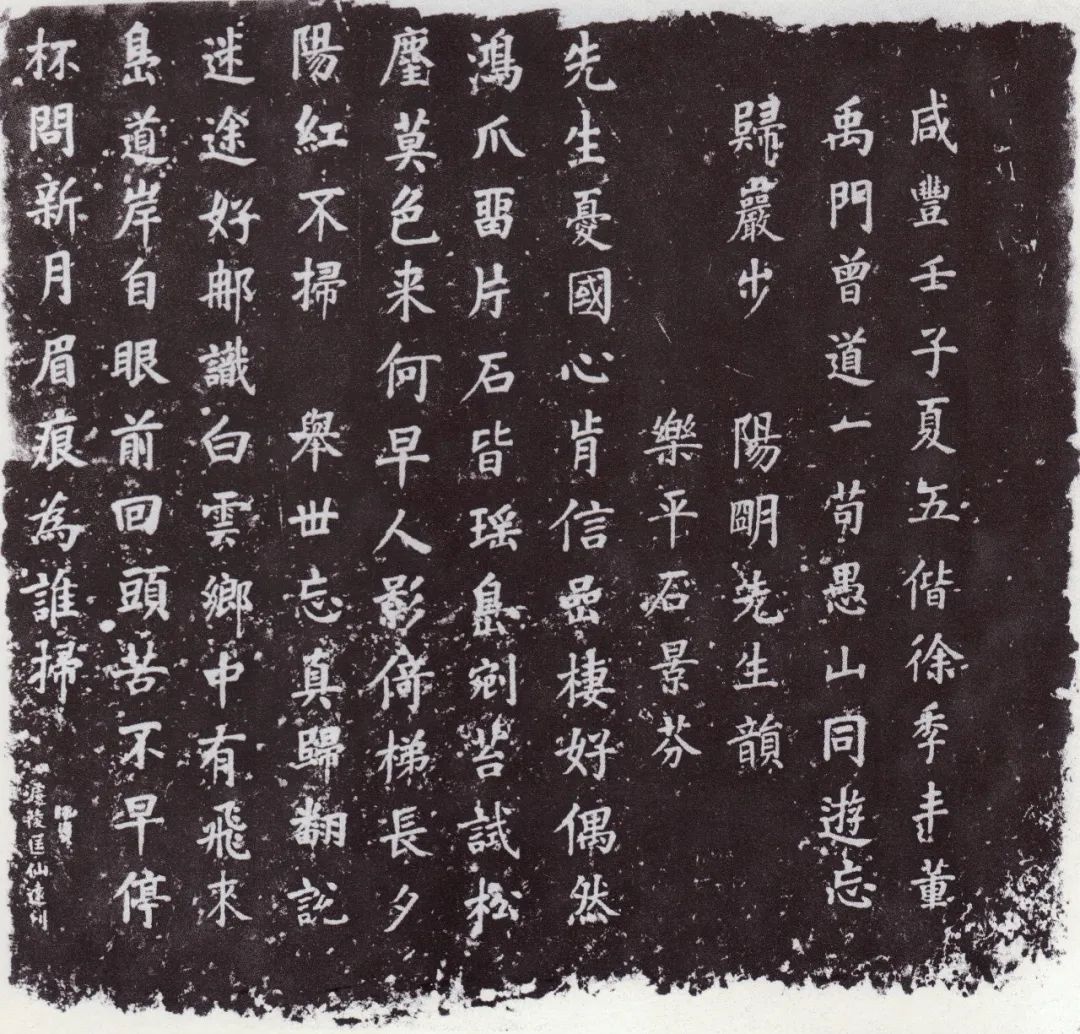 咸豐壬子夏五偕徐季董
禹門曾道一苟愚山同遊忘
歸巖步 陽朙先生韻
樂平石景芬
先生憂國心肯信嵒棲好偶然
鴻爪畱片石皆瑶島剜苔試松
麈莫色来何早人影倚梯長夕
陽紅不掃 舉世忘真歸翻説
迷途好郍識白雲鄉中有飛来
島道岸自眼前回頭苦不早停
杯問新月眉痕為誰掃
陵匡仙達刊